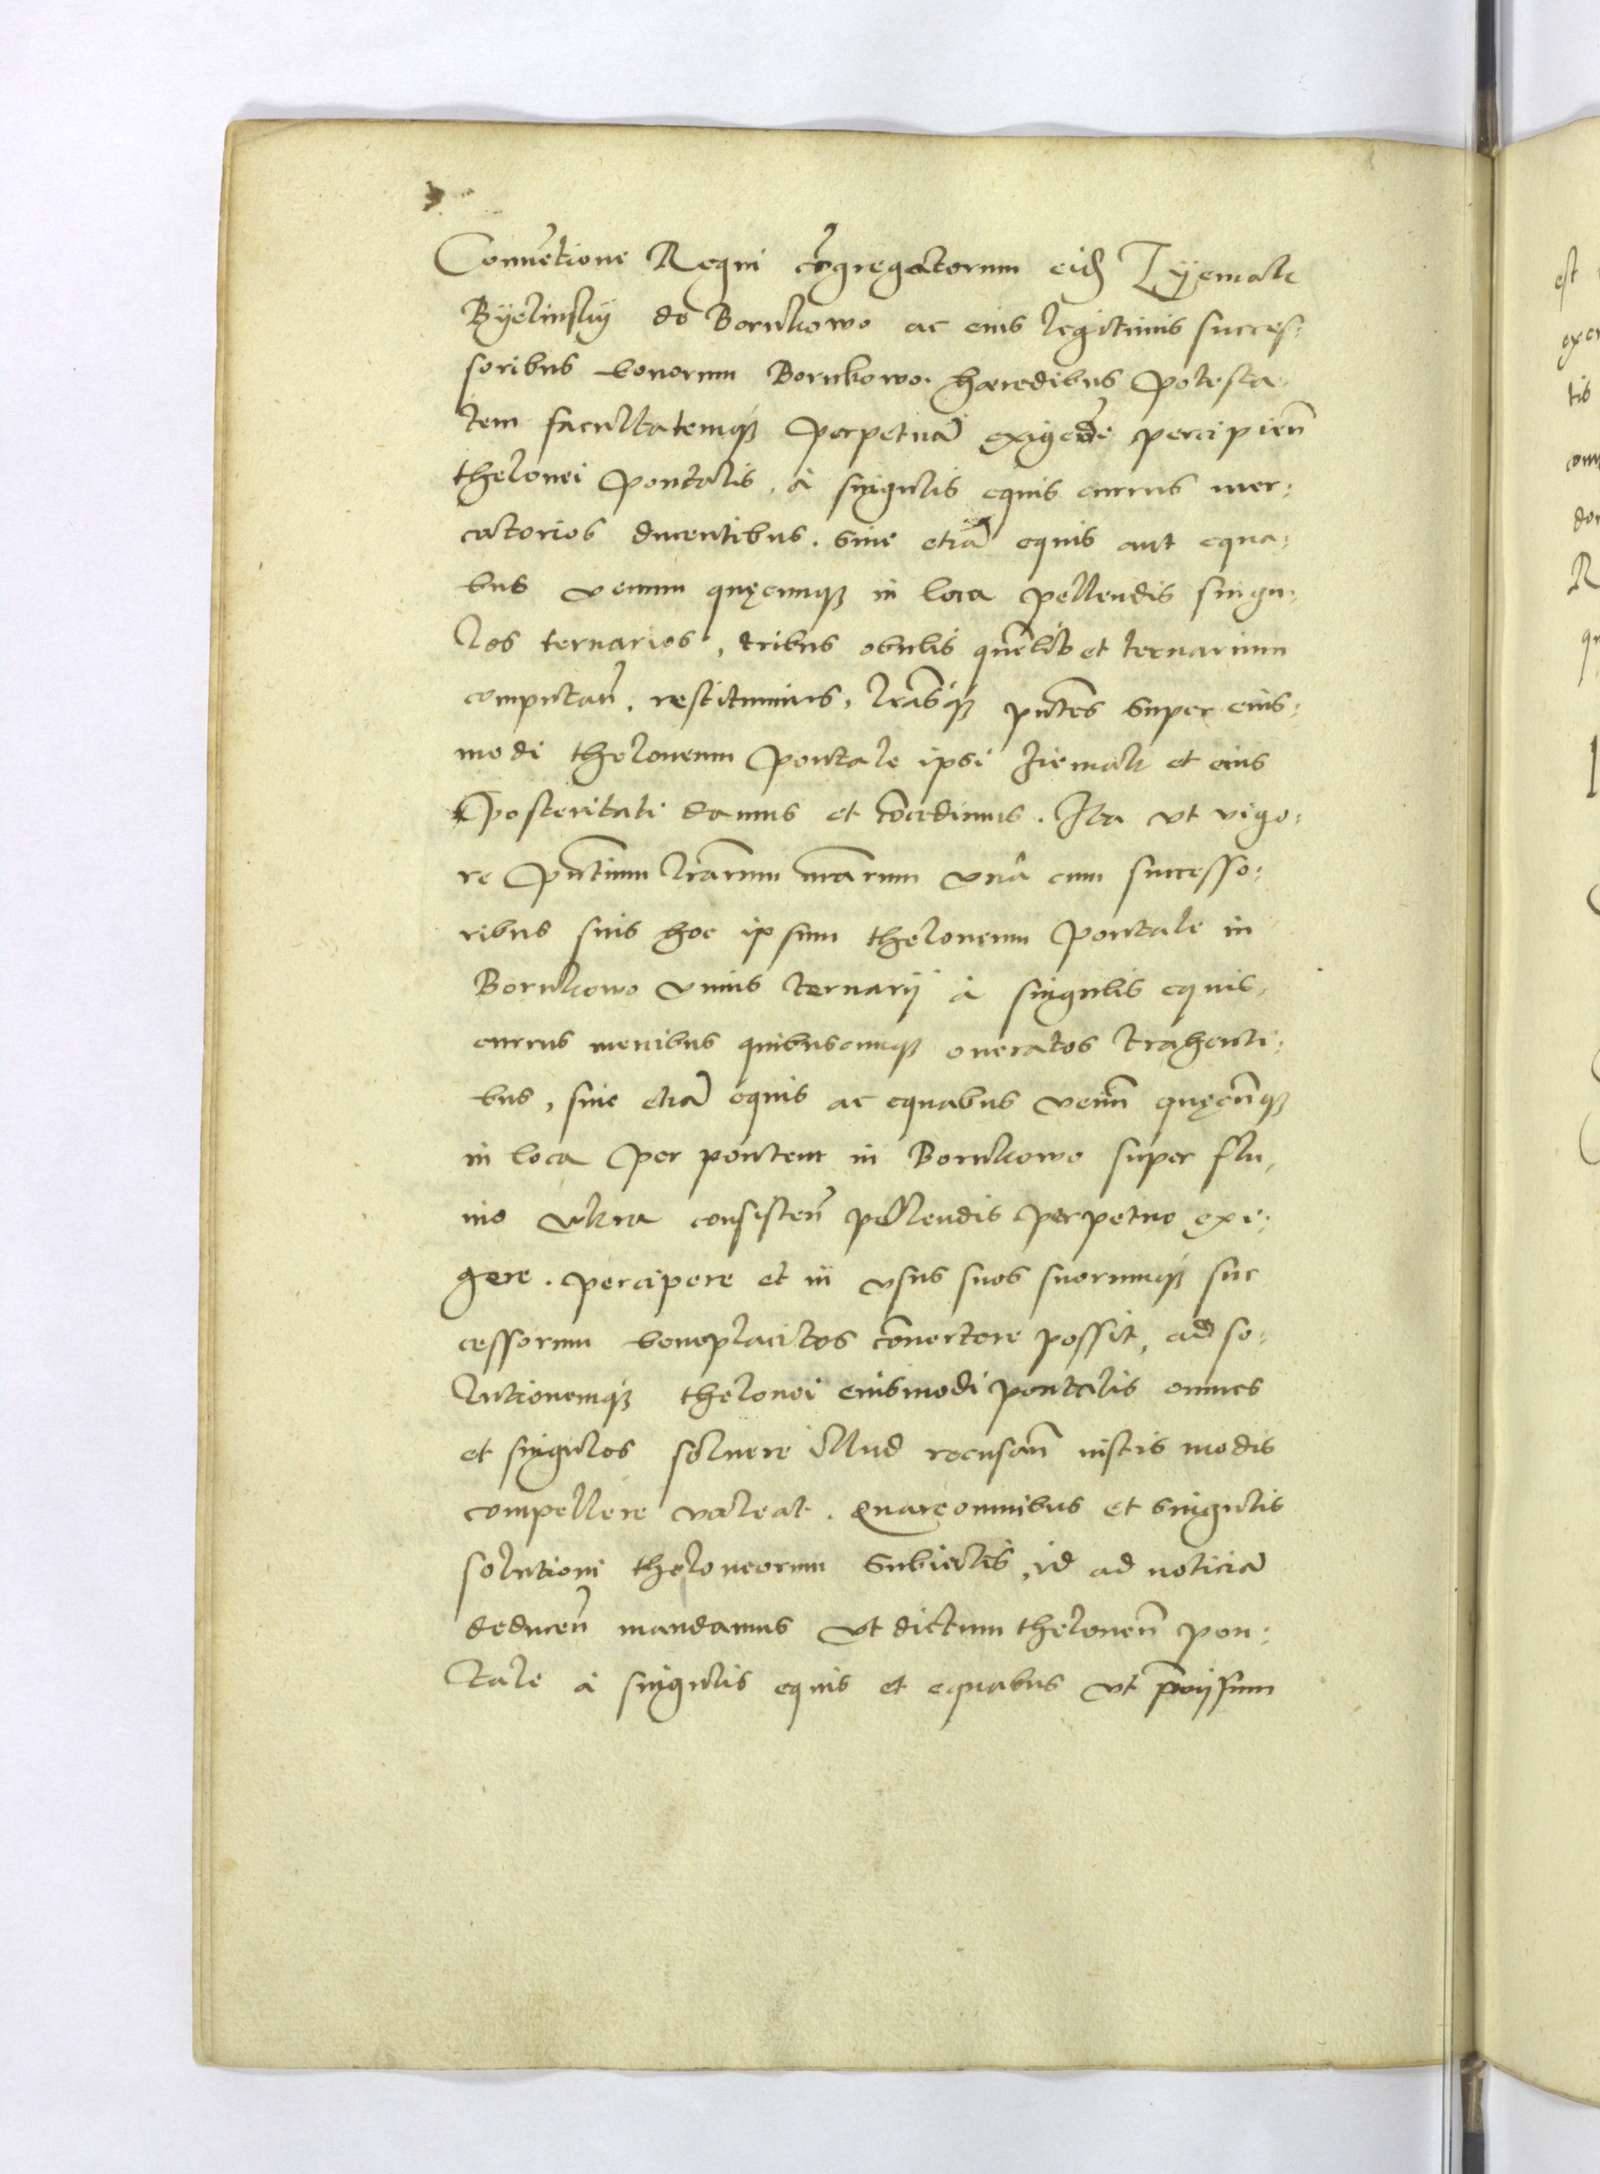 Convētione Regni cōgregatorum eidē Zyemak
Byelinsky de Borukowo ac eius legitimis succes:
soribus bonorum Borukowo hæredibus potesta:
tem facultatemq; perpetuā exigēdi percipieñ
thelonei pontalis, à singulis equis currus mer:
catorios ducentibus. Siue etiā equis aut equa:
bus venum quęcumq; in loca pellendis singu:
los ternarios, tribus obulis quēlib et ternarium
computañ, restituimus, lr̄asq; pñtes super eius:
modi theloneum pontale ipsi Ziemak et eius
posteritati damus et cōcedimus. Ita vt vigo:
re pñtium lr̄arum nr̄arum vnâ cum successo:
ribus suis hoc ipsum theloneum pontale in
Borukowo vnius ternarij à singulis equis
currus mercibus quibuscumq; oneratos trahenti:
bus, siue etiā equis ac equabus venū quęcūq;
in loca per pontem in Borukowo super flu:
uio Wkra consisteñ pellendis perpetuo exi:
gere. percipere et in vsus suos suorumq; suc
cessorum beneplacitos cōuertere possit, ad so:
lutionemq; thelonei eiusmodi pontalis omnes
et singulos soluere illud recusañ iustis modis
compellere valeat. Quare omnibus et singulis
solutioni theloneorum subiectis, id ad noticiā
deduceñ mandamus vt dictum theloneū pon:
tale à singulis equis et equabus vt